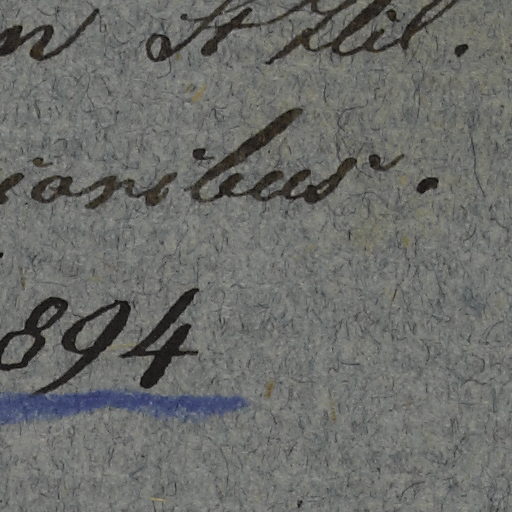 n St Hil.
ionibus.
894